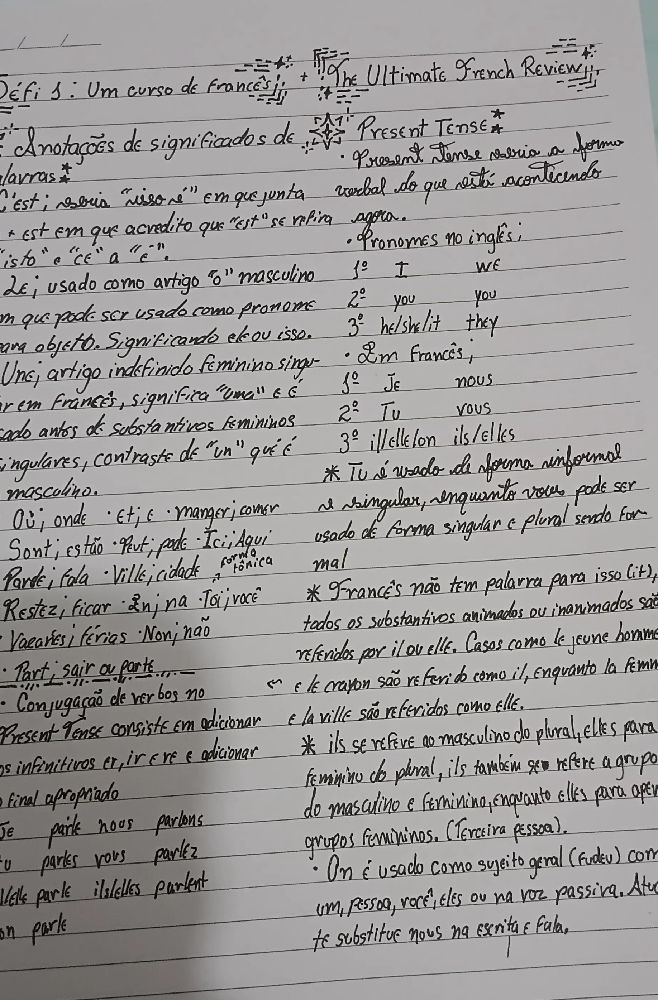 Défi 1: Um curso de francês; + The Ultimate French Review;
Anotações de significados de
lavras*
C'est; seria "isso é" em que junta
+ est em que acredito que "est" se refira
"isto" e "ce" a "é".
Le; usado como artigo "o" masculino
m que pode ser usado como pronome
para objeto. Significando ele ou isso.
Une; artigo indefinido feminino singu-
r em francês, significa "uma" e é
sado antes de substantivos femininos
singulares, contraste de "un" que é
masculino.
Où; onde · Et; e · manger; comer
Sont; estão · Peut; pode · Ici; Aqui
Parle; fala · Ville; cidade forma tônica
Restez; ficar · En; na · Toi; você
Vacances; férias · Non; não
· Part; sair ou parte
· Conjugação de verbos no
Present Tense consiste em adicionar
os infinitivos er, ir e re e adicionar
o final apropriado
Je parle nous parlons
tu parles vous parlez
l/elle parle ils/elles parlent
on parle
Present Tense*
· Present Tense seria a forma
verbal do que está acontecendo
agora.
· Pronomes no inglês;
1º I we
2º you you
3º he/she/it they
· Em francês;
1º Je nous
2º Tu vous
3º il/elle/on ils/elles
* Tu é usado de forma informal
e singular, enquanto vous pode ser
usado de forma singular e plural sendo for-
mal
* Francês não tem palavra para isso (it),
todos os substantivos animados ou inanimados são
referidos por il ou elle. Casos como le jeune homme
e le crayon são referido como il, enquanto la femm
e la ville são referidos como elle.
* ils se refere ao masculino do plural, elles para
feminino do plural, ils também refere a grupo
do masculino e feminino, enquanto elles para apen
grupos femininos. (Terceira pessoa).
· On é usado como sujeito geral com
um, pessoa, você, eles ou na voz passiva. Atu
te substitue nous na escrita e fala.